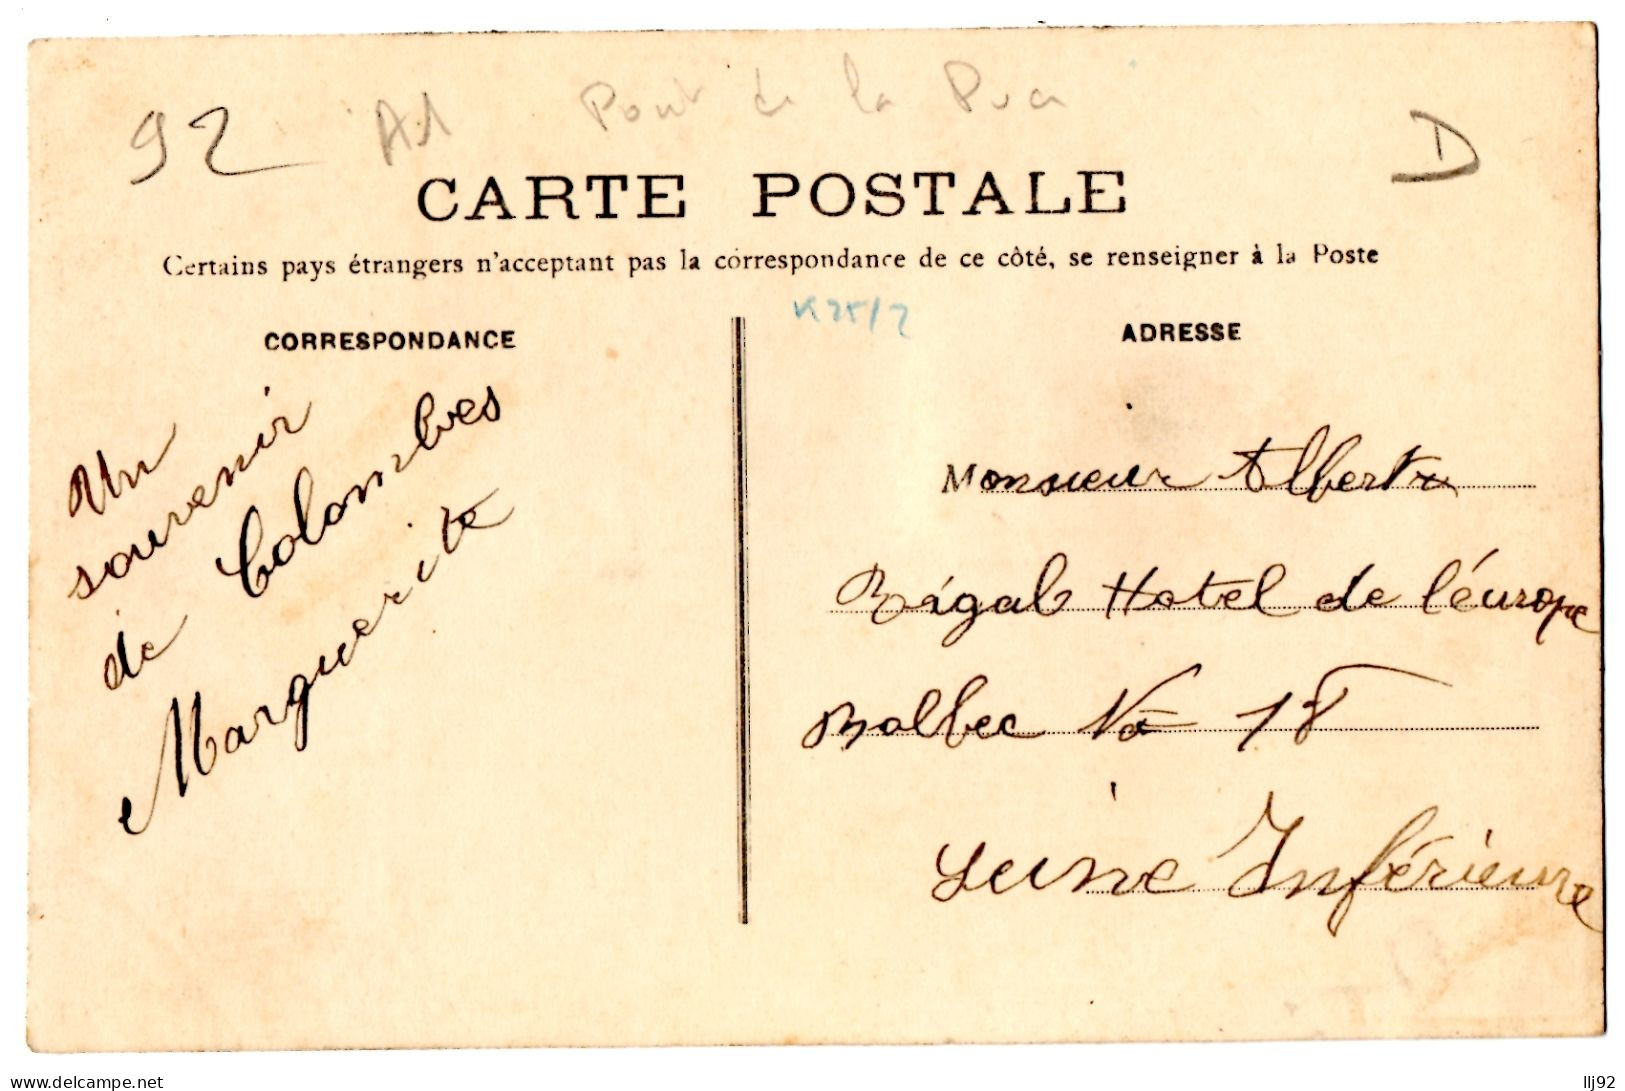 92 Ad Pont de la Puce D
CARTE POSTALE
Certains pays étrangers n'acceptant pas la correspondance de ce côté, se renseigner à la Poste
K25/2
CORRESPONDANCE
Un
souvenir
de Colombes
Marguerite
ADRESSE
Monsieur Albert
Bégab Hotel de l'éurope
Bolbec No 18
Seine Inférieure
www.delcampe.net
llj92